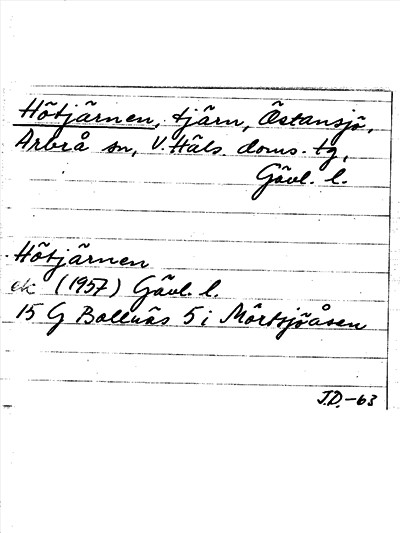 Hötjärnen, tjärn, Östansjö,
Arbrå sn, V. Häls. doms. tg,
Gävl. l.
Hötjärnen
ek (1957) Gävl. l.
15 G Bollnäs 5 i Mörtsjöåsen
J.D.-63